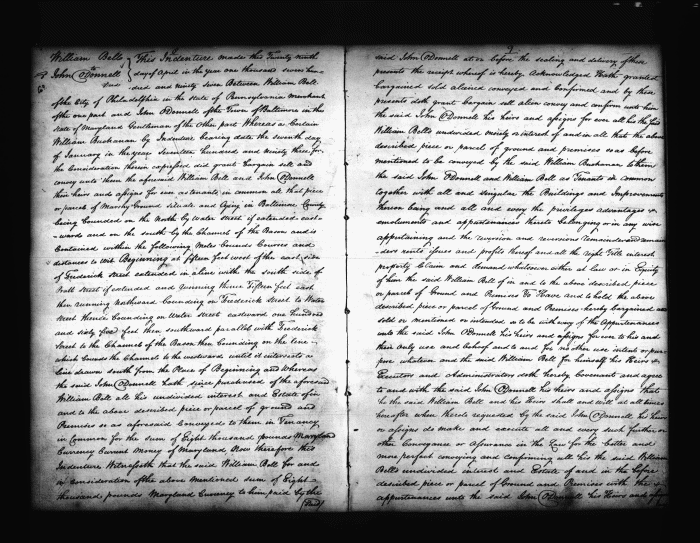 William Bell
to
John O'Donnell
Deed
This Indenture made this Twenty ninth
day of April in the year one thousand seven hun-
dred and ninety seven Between William Bell
of the City of Philadelphia in the state of Pennsylvania merchant
of the one part and John O'Donnell of the Town of Baltimore in the
state of Maryland Gentleman of the other part Whereas a Certain
William Buchanan by Indenture bearing date the seventh day
of January in the year Seventeen hundred and ninety three for
the Consideration therein expressed did grant bargain sell and
convey unto them the aforesaid William Bell and John O'Donnell
their heirs and assigns for ever as tenants in common all that piece
or parcel of Marshy Ground situate and lying in Baltimore County
being bounded on the North by Water street if extended east
wards and on the south by the Channel of the Bason and is
Contained within the following Metes Bounds Courses and
distances to wit Beginning at fifteen feet west of the east side
of Frederick street extended in a line with the south side of
Wall street if extended and running thence Fifteen feet east
then running northward bounding on Frederick street to Water
street thence bounding on Water street eastward one hundred
and sixty feet then southward parallel with Frederick
Street to the Channel of the Bason then bounding on the line
which bounds the Channel to the westward until it intersects a
line drawn south from the Place of Beginning and Whereas
the said John O'Donnell hath since purchased of the aforesaid
William Bell all his undivided interest and Estate of in
and to the above described piece or parcel of ground and
Premises so as aforesaid Conveyed to them in Tenancy
in Common for the sum of Eight thousand pounds Maryland
Currency Current Money of Maryland Now therefore this
Indenture Witnesseth that the said William Bell for and
in consideration of the above mentioned sum of Eight
thousand pounds Maryland Currency to him paid by the
said
said John O'Donnell at or before the sealing and delivery of these
presents the receipt whereof is hereby Acknowledged Hath granted
bargained sold aliened conveyed and Confirmed and by these
presents doth grant bargain sell alien convey and confirm unto him
the said John O'Donnell his heirs and assigns for ever all his the said
William Bell's undivided moiety or interest of and in all that the above
described piece or parcel of ground and premises so as before
mentioned to be conveyed by the said William Buchanan to them
the said John O'Donnell and William Bell as Tenants in common
together with all and singular the Buildings and Improvements
thereon being and all and every the privileges advantages
emoluments and appurtenances thereto belonging or in any wise
appertaining and the reversion and reversions remainder and remain-
ders rents issues and profits thereof and all the right Title interest
property Claim and demand whatsoever either at law or in Equity
of him the said William Bell of in and to the above described piece
or parcel of Ground and Premises To Have and to hold the above
described piece or parcel of Ground and Premises hereby bargained and
sold or mentioned or intended so to be with every of the Appurtenances
unto the said John O'Donnell his heirs and assigns for ever to his and
their Only use and behoof and to and for no other use intent or pur-
pose whatsoever and the said William Bell for himself his Heirs
Executors and Administrators doth hereby Covenant and agree
to and with the said John O'Donnell his heirs and assigns that
he the said William Bell and his Heirs shall and will at all times
hereafter when thereto requested by the said John O'Donnell his heirs
or assigns do make and execute all and every such further or
other Conveyance or Assurance in the Law for the better and
more perfect conveying and confirming all his the said William
Bell's undivided interest and Estate of and in the before
described piece or parcel of Ground and Premises with the
appurtenances unto the said John O'Donnell his Heirs and